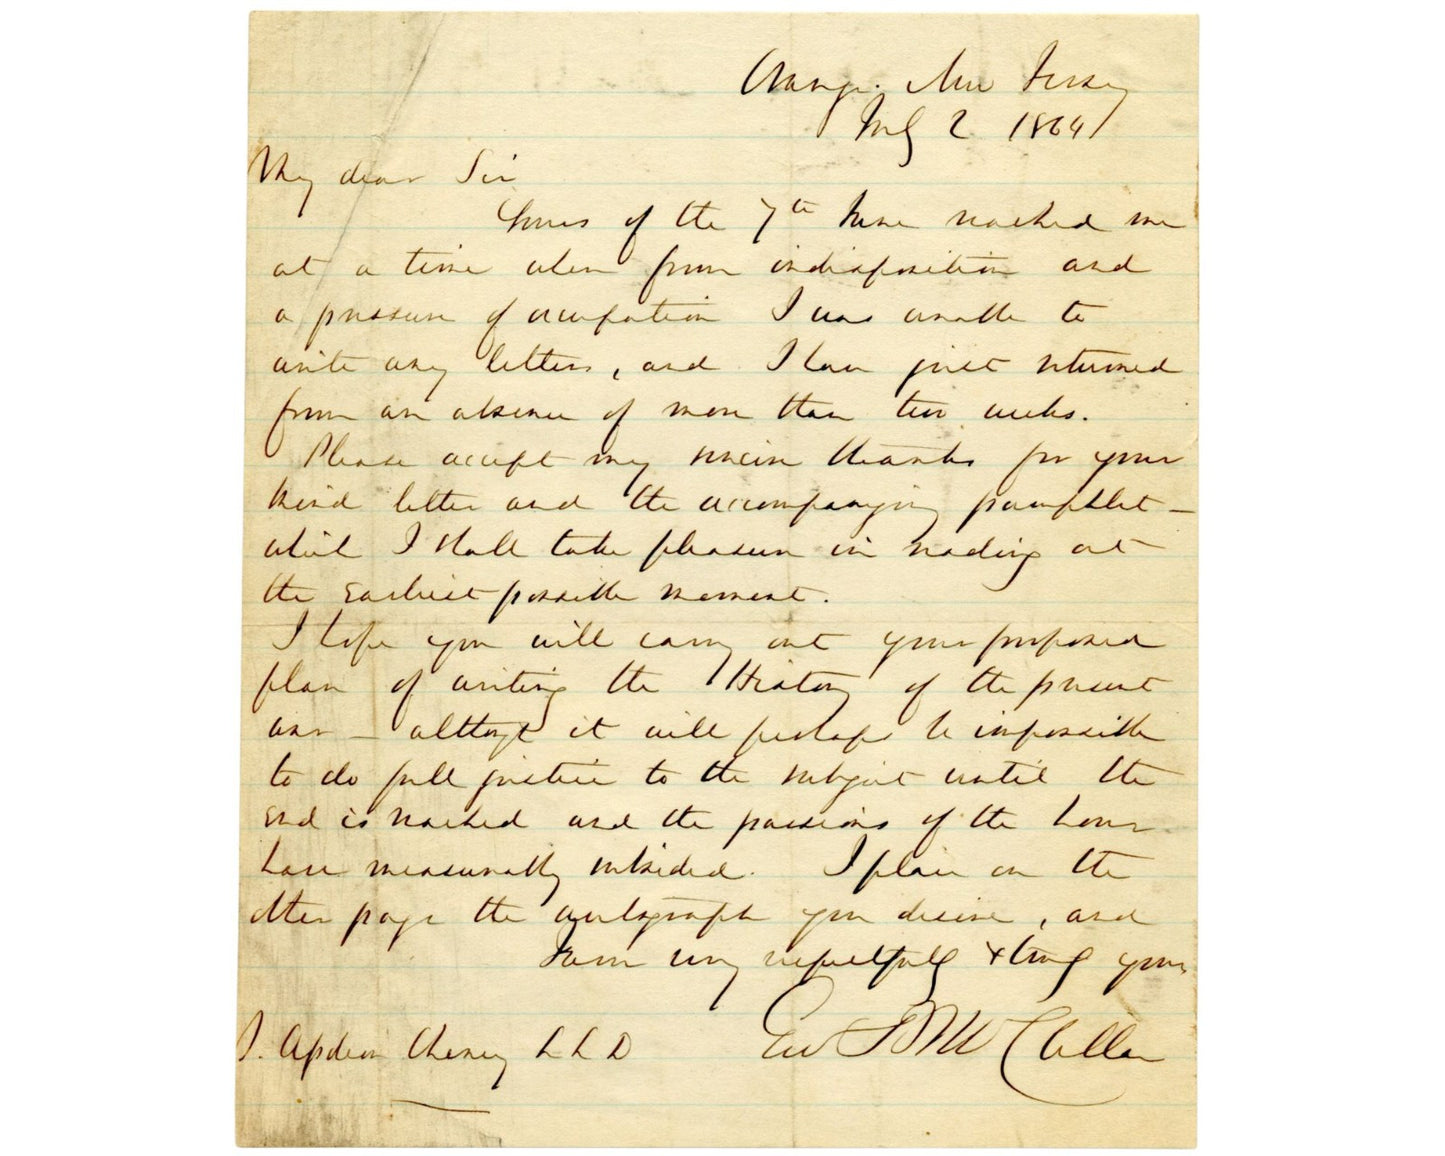 Orange, New Jersey
July 2 1864
My dear Sir
Yours of the 7th June reached me
at a time when from indisposition and
a pressure of occupation I was unable to
write any letters, and I have just returned
from an absence of more than two weeks.
Please accept my sincere thanks for your
kind letter and the accompanying pamphlet -
which I shall take pleasure in reading at
the earliest possible moment.
I hope you will carry out your proposed
plan of writing the History of the present
war - althogh it will perhaps be impossible
to do full justice to the subject until the
end is reached and the passions of the hour
have measurably subsided. I place on the
other page the autograph you desire, and
I am very respectfully & truly yours
Geo B McClellan
J. Cheney LLD